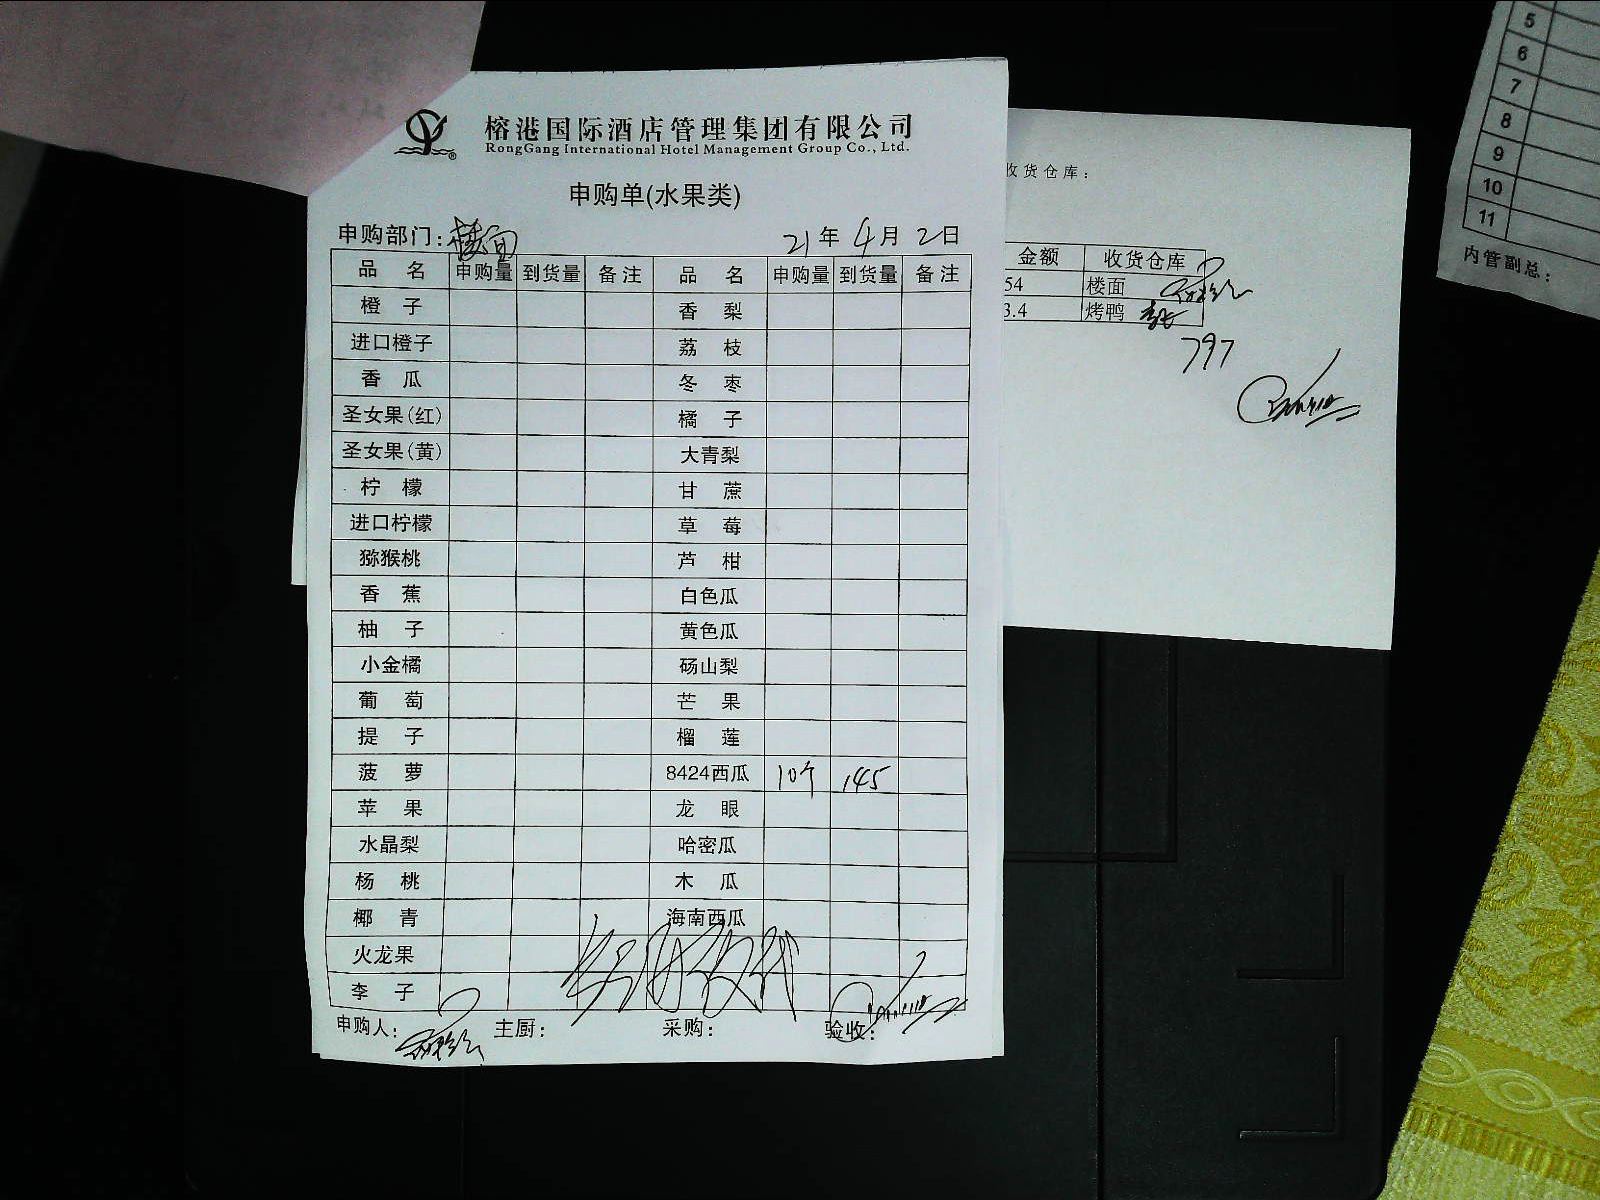 榕港国际酒店管理集团有限公司
RongGang International Hotel Management Group Co., Ltd.
申购单(水果类)
申购部门: 楼面 21年4月2日
品名 申购量 到货量 备注 品名 申购量 到货量 备注
橙子 香梨
进口橙子 荔枝
香瓜 冬枣
圣女果(红) 橘子
圣女果(黄) 大青梨
柠檬 甘蔗
进口柠檬 草莓
猕猴桃 芦柑
香蕉 白色瓜
柚子 黄色瓜
小金橘 砀山梨
葡萄 芒果
提子 榴莲
菠萝 8424西瓜 10个 145
苹果 龙眼
水晶梨 哈密瓜
杨桃 木瓜
椰青 海南西瓜
火龙果
李子
申购人: 主厨: 采购: 验收:
收货仓库:
金额 收货仓库
54 楼面
3.4 烤鸭
797
5
6
7
8
9
10
11
内管副总: